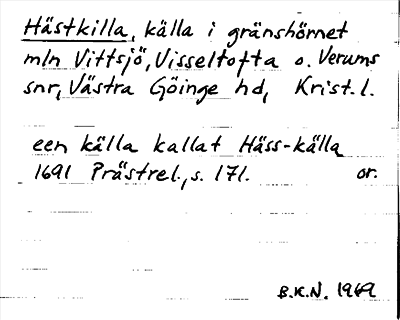 Hästkilla, källa i gränshörnet
mln Vittsjö, Visseltofta o. Verums
snr, Västra Göinge hd, Krist. l.
een källa kallat Häss-källa
1691 Prästrel., s. 171. or.
B.K.N. 1969